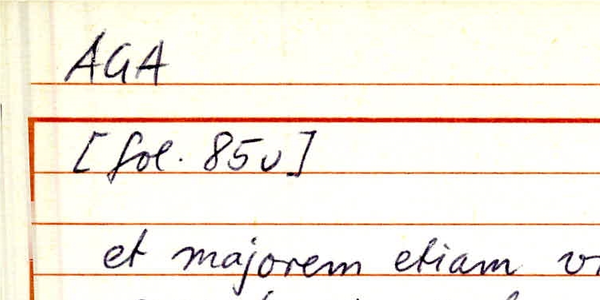 AGA
[fol. 85v]
et majorem etiam